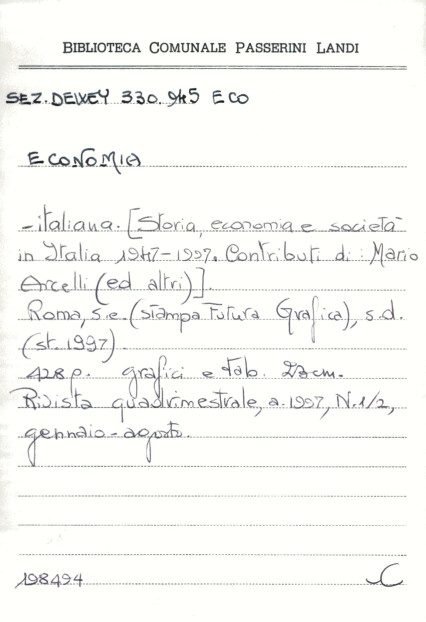 BIBLIOTECA COMUNALE PASSERINI LANDI
SEZ. DEWEY 330.945 ECO
ECONOMIA
-italiana. [Storia, economia e società
in Italia 1947-1997. Contributi di: Mario
Arcelli (ed altri)].
Roma, s.e. (stampa Futura Grafica), s.d.
(st. 1997)
428 p. grafici e tab. 23 cm.
Rivista quadrimestrale, a. 1997, N. 1/2,
gennaio-agosto.
198494 C